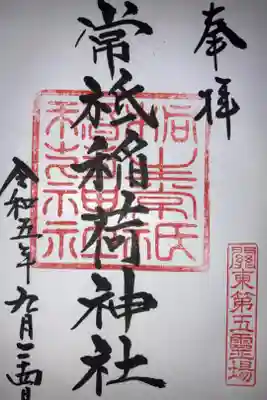 奉拝
常祇稲荷神社
關東第五霊場
令和五年 九月二四日